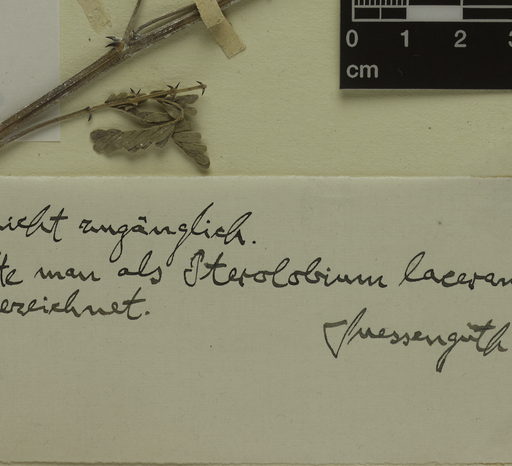 0 1 2 3
cm
nicht zugänglich.
te man als Pterolobium laceran
ezeichnet.
Suessenguth